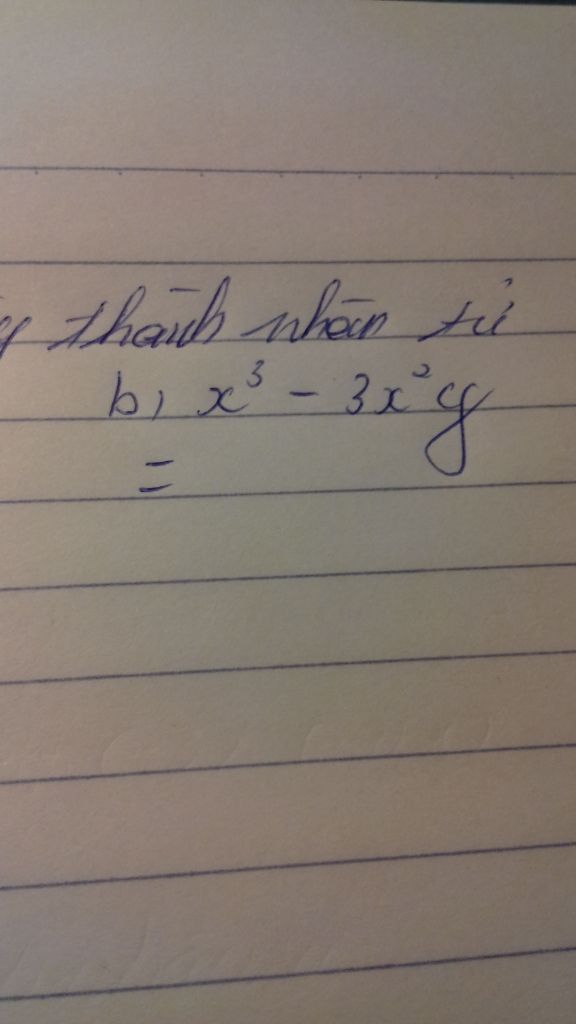 thành nhân tử
b, x³ - 3x²y
=